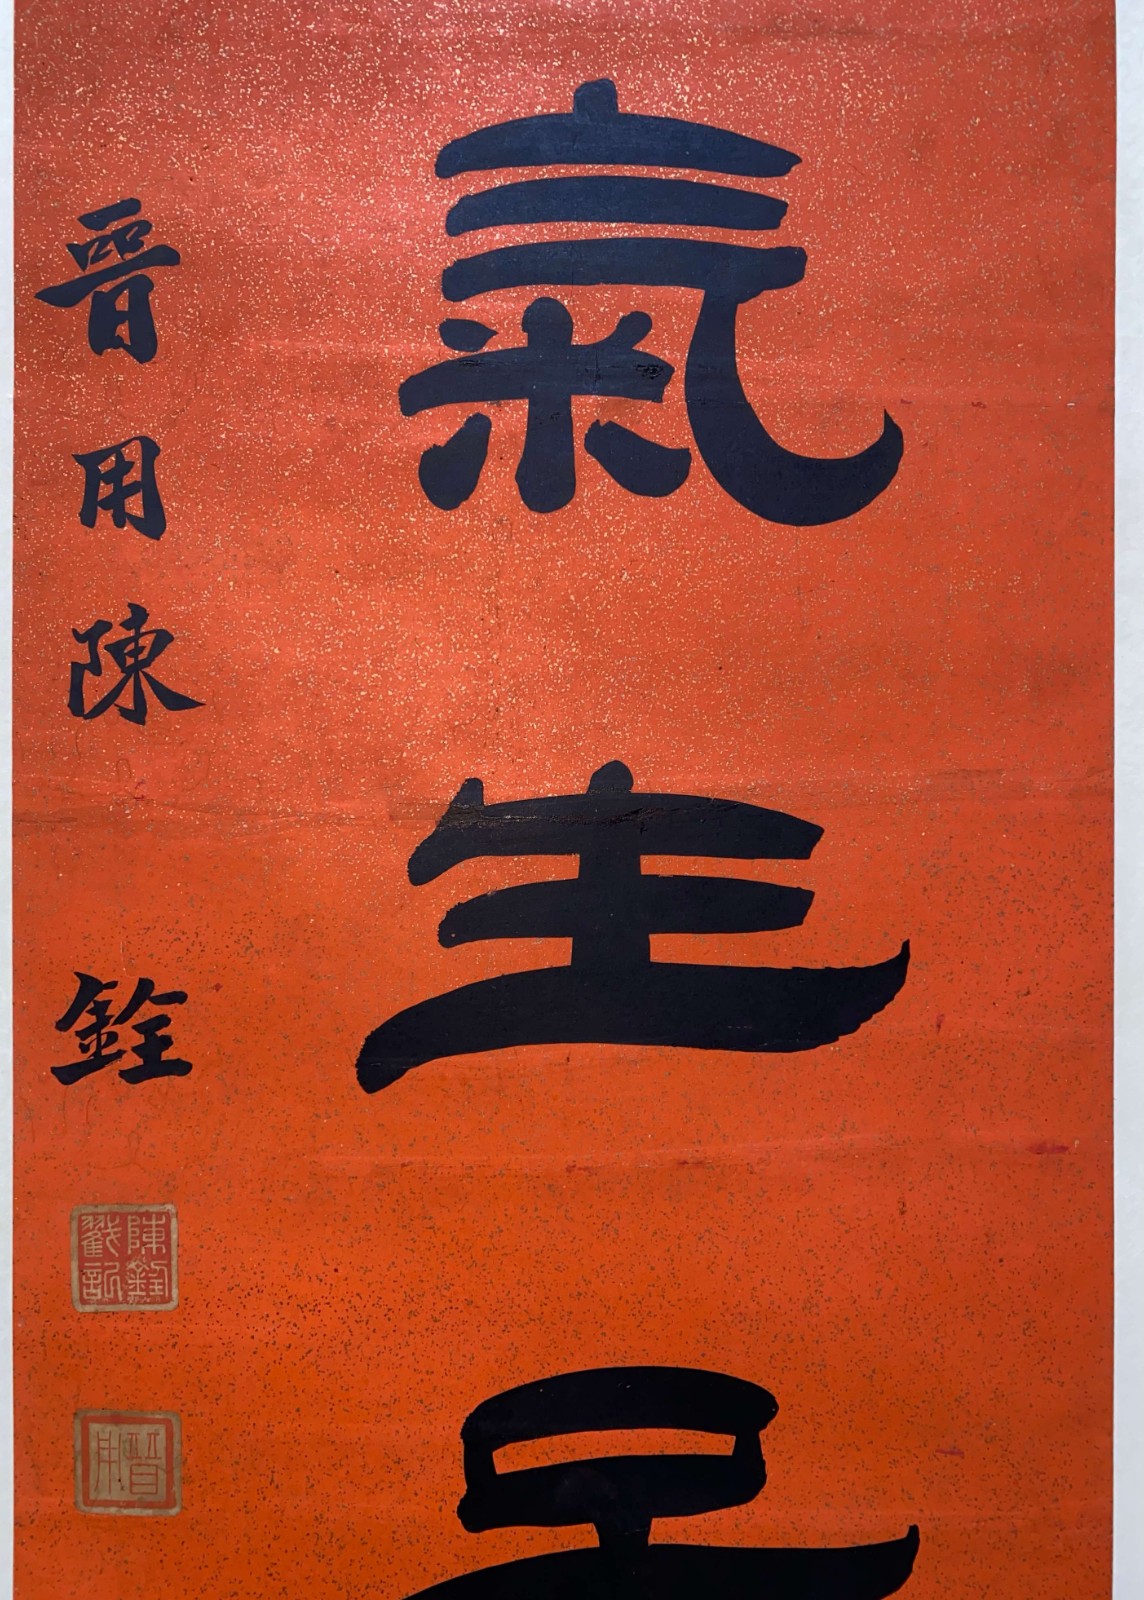 氣生
晉用陳銓
陳銓戳記
晉用